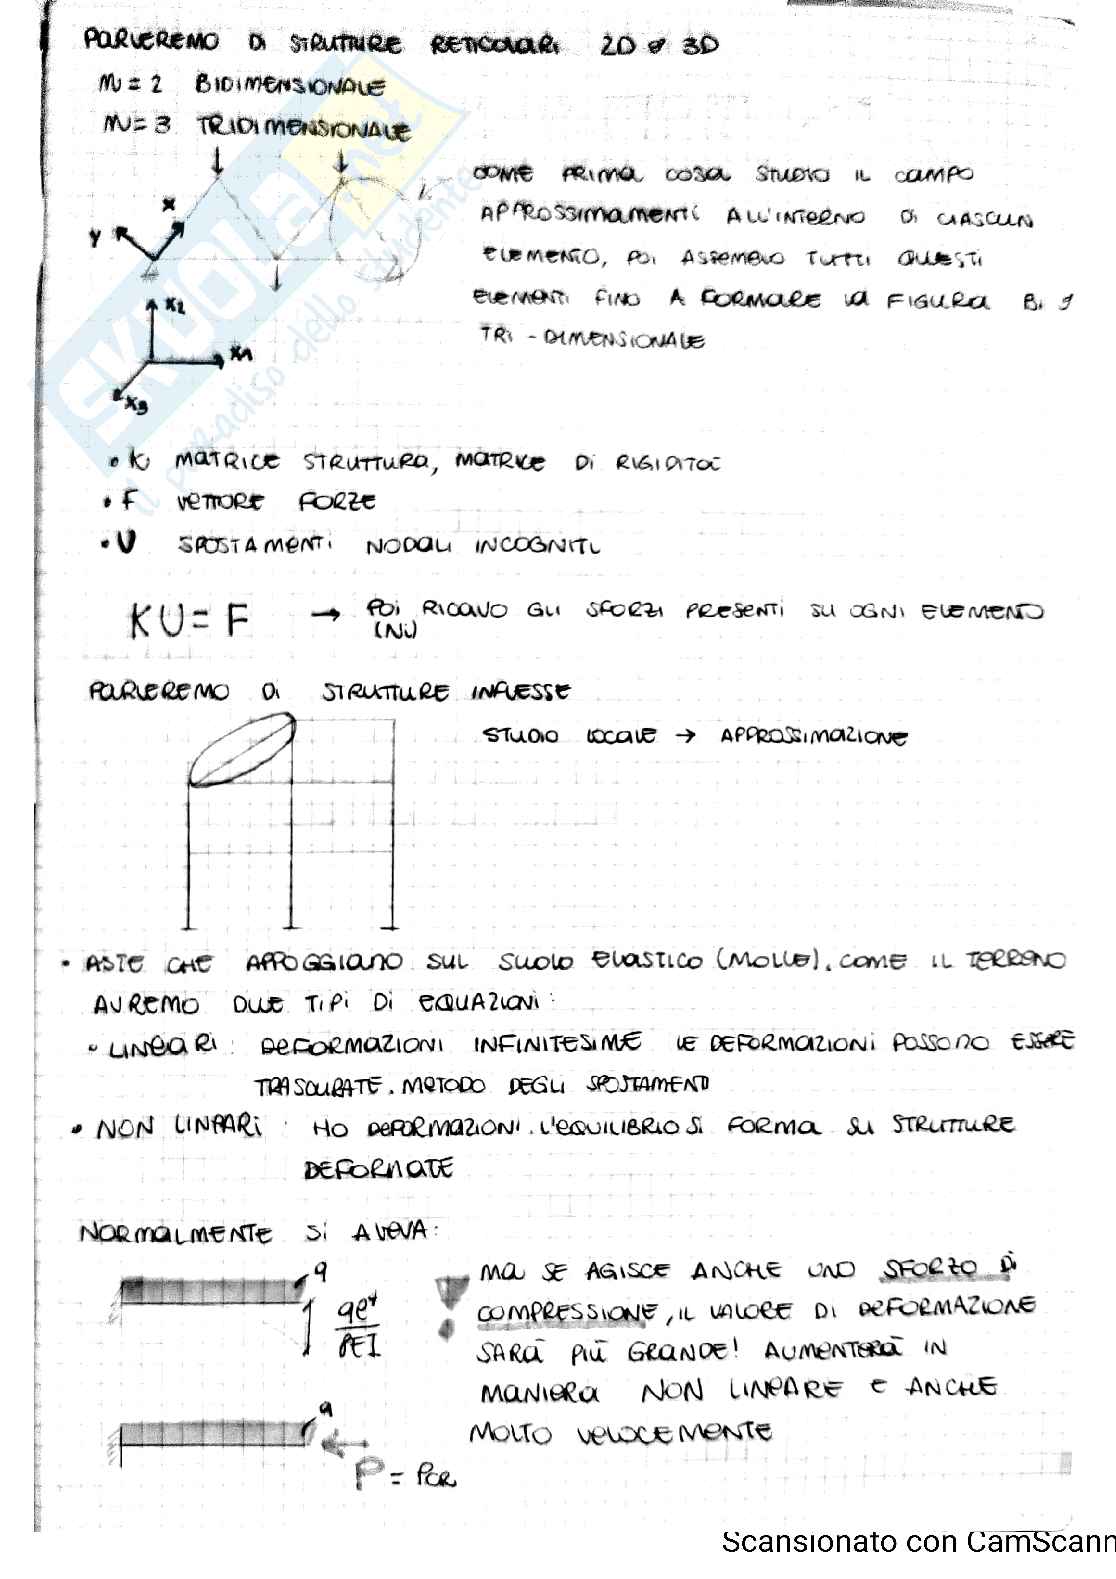 PARLEREMO DI STRUTTURE RETICOLARI 2D e 3D
n = 2 BIDIMENSIONALE
n = 3 TRIDIMENSIONALE
COME PRIMA COSA STUDIO IL CAMPO
APPROSSIMAMENTI ALL'INTERNO DI CIASCUN
ELEMENTO, POI ASSEMBLO TUTTI QUESTI
ELEMENTI FINO A FORMARE LA FIGURA BI e
TRI - DIMENSIONALE
x
y
x2
x1
x3
• K MATRICE STRUTTURA, MATRICE DI RIGIDITÀ
• F VETTORE FORZE
• U SPOSTAMENTI NODALI INCOGNITI
KU = F → POI RICAVO GLI SFORZI PRESENTI SU OGNI ELEMENTO
(Ni)
PARLEREMO DI STRUTTURE INFLESSE
STUDIO LOCALE → APPROSSIMAZIONE
• ASTE CHE APPOGGIANO SUL SUOLO ELASTICO (MOLLE), COME IL TERRENO
AVREMO DUE TIPI DI EQUAZIONI:
• LINEARI: DEFORMAZIONI INFINITESIME LE DEFORMAZIONI POSSONO ESSERE
TRASCURATE. METODO DEGLI SPOSTAMENTI
• NON LINEARI: HO DEFORMAZIONI. L'EQUILIBRIO SI FORMA SU STRUTTURE
DEFORMATE
NORMALMENTE SI AVEVA:
q
ql⁴
8EI
! MA SE AGISCE ANCHE UNO SFORZO DI
COMPRESSIONE, IL VALORE DI DEFORMAZIONE
SARÀ PIÙ GRANDE! AUMENTERÀ IN
MANIERA NON LINEARE E ANCHE
MOLTO VELOCEMENTE
q
P = PCR
SKUOLA.net
il paradiso dello studente
Scansionato con CamScann